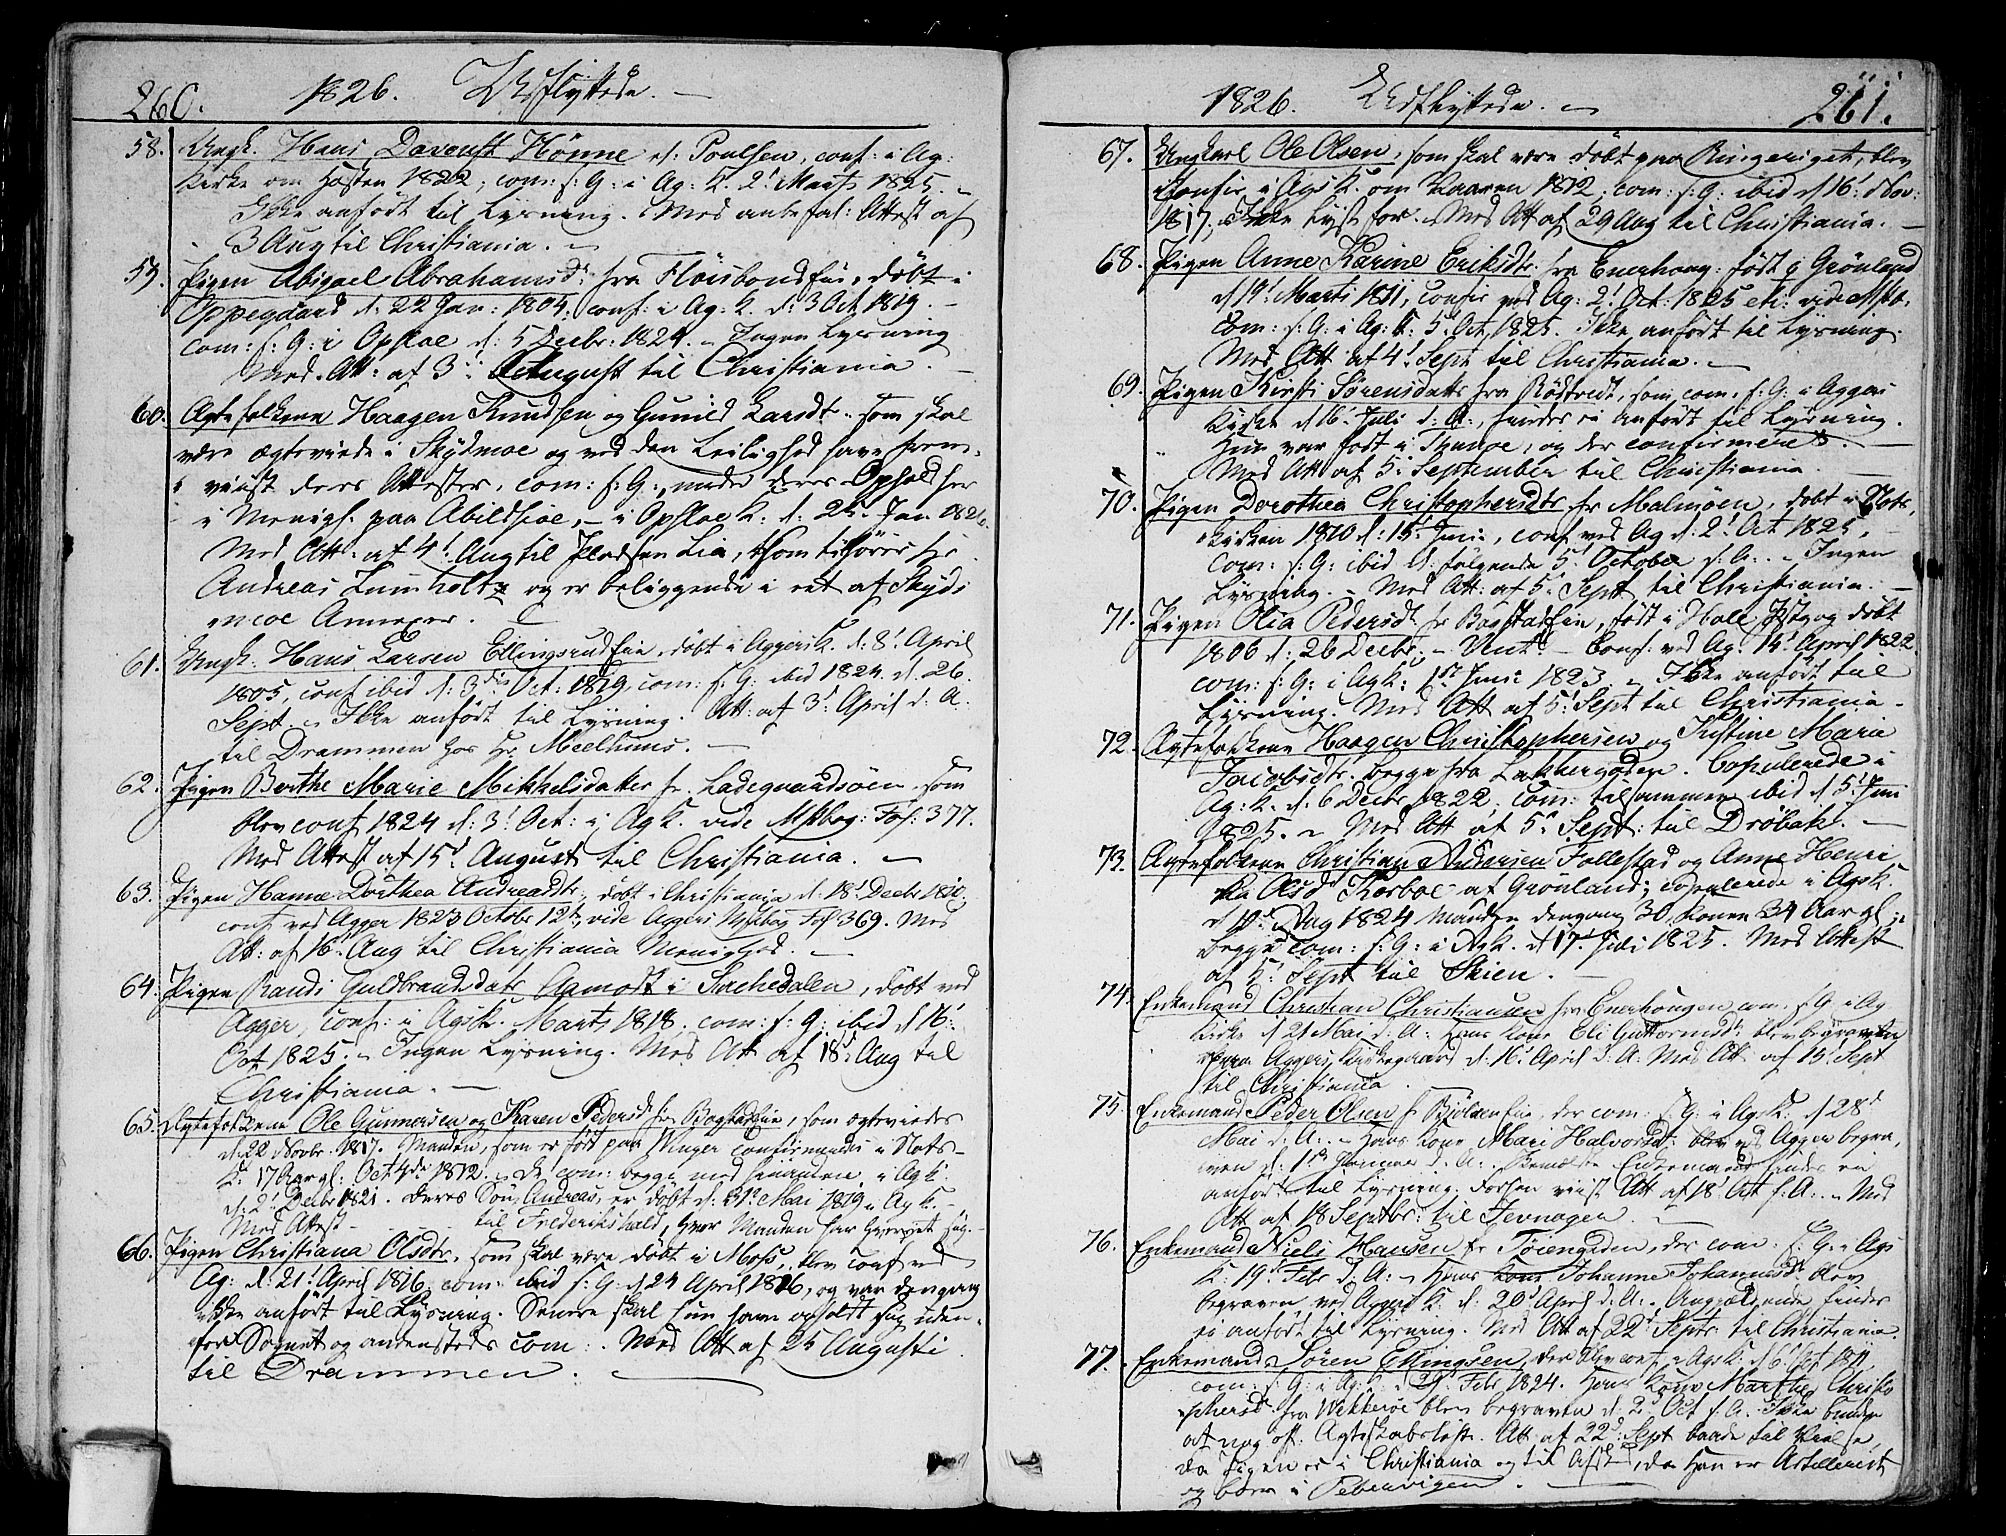 260. 1826. Udflyttede. —
58. Ungk. Hans Davoust Hønne d: Poulsen, conf: i Ag:
Kirke om Høsten 1822, com: s: G: i Ag: K. 2' Marts 1825. —
Ikke anført til Lysning. Med anbefal: Attest af
3 Aug til Christiania. —
59. Pigen Abigael Abrahamsd: fra Fløisbond Eie, døbt i
Oppegaard d: 22 Jan: 1804, conf: i Ag: K. d: 3 Oct 1819. —
com: s: G: i Opsloe d: 5 Decbr: 1824. — Ingen Lysning
Med Att: af 3' August til Christiania. —
60. Ægtefolkene Haagen Knudsen og Gunild Larsdt: som skal
være ægteviede i Skydsmoe og ved den Leilighed have frem-
viist deres Attester, com: s: G: under deres Ophold her
i Menigh: paa Abildsøe, — i Opsloe K: d: 24. Jan 1826.
Med Att: af 4' Aug til Pladsen Lia, som tilhører Hr
Andreas Lumholtz og er beliggende i eet af Skyds-
moe Annexer.
61. Ungk: Hans Larsen Ellingsrud Eie, døbt i Aggers K. d: 8' April
1805, conf ibid d: 3die Oct: 1819, com: s: G: ibid 1824 d. 26.
Sept. — Ikke anført til Lysning. Att: af 3' April d: A.
til Drammen hos Hr Meelhuus. —
62. Pigen Berthe Marie Mikkelsdatter fr. Ladegaardsøen, som
blev conf 1824 d: 3' Oct: i Ag K. vide Mskbog: Fol: 377.
Med Attest af 15' August til Christiania. —
63. Pigen Hanne Dorthea Andreasdtr, døbt i Christiania d: 18' Decbr 1810,
conf ved Agger 1823 Octobr 12te, vide Aggers Mskbog Fol 369. Med
Att: af 16' Aug til Christiania Menighed. —
64. Pigen Randi Guldbrandsdatr Aamodt i Sørchedalen, døbt ved
Agger, conf: i Ags K. Marts 1818. com: s: G: ibid d 16'
Oct 1825. — Ingen Lysning. Med Att af 18' Aug til
Christiania. —
65. Ægtefolkene Ole Gunnersen og Karen Pedersd fra Bogstad Eie, som ægteviedes
d. 22 Novbr. 1817. Manden, som er født paa Winger confirmeredes i Slots-
K: 17 Aar gl: Oct 4de 1812. — De com: begge med hinanden i Ag K.
d: 2' Decbr 1821. Deres Søn, Andreas, er døbt d: 31te Mai 1819 i Ag K. —
Med Attest — til Frederikshald, hvor Manden har hvervet sig. —
66. Pigen Christiana Olsdtr, som skal være døbt i Moss, blev conf ved
Ag: d: 21' April 1816, com: ibid s: G: d 24 April 1816, og var dengang
ikke anført til Lysning. Senere skal hun have opholdt sig uden-
for Sognet og andensteds com: . Med Att af 25 Augusti
til Drammen. —
1826. Udflyttede. — 261.
67. Ungkarl Ole Olsen, som skal være døbt paa Ringeriget, blev
confir. i Ags K. om Vaaren 1812, com: s: G: ibid d 16' Nov:
1817, Ikke lyst for. Med Att af 29 Aug til Christiania. —
68. Pigen Anne Karine Eriksdtr fra Enerhoug: født i Grønland
d 19' Marti 1811, confir ved Ag: 2' Oct: 1825
Com: s: G: i Ag: K. 5' Oct 1825. Ikke anført til Lysning.
Med Att af 4' Sept til Christiania. —
69. Pigen Kirsti Sørensdatr fra Rødtvedt, som com: s: G: i Aggers
Kirke d 16' Juli d: A:, findes ei anført til Lysning.
Hun var født i , og der confirmeret. —
Med Att af 5' September til Christiania. —
70. Pigen Dorothea Christophersdtr fr Malmøen, døbt i Slots-
kirken 1810 d: 15' Juni, conf ved Ag d: 2' Oct 1825, —
Com: s: G: ibid d: følgende 5' October s: A: . Ingen
Lysning. — Med Att: af 5' Sept til Christiania. —
71. Pigen Olia Pedersd fr Bogstad Eie, født i Hole Pstg og døbt
1806 d: 26 Decbr. — Conf: ved Ag. 14' April 1822
com: s: G: i Ag K: 1ste Juni 1823. — Ikke anført til
Lysning. Med Att af 5' Sept til Christiania. —
72. Ægtefolkene Haagen Christophersen og Kistine Marie
Jacobsdtr. begge fra Lakkergaden. Copulerede i
Ag: K. d: 6 Decbr 1822. Com: tilsammen ibid d 5' Juni
1825. — Med Att af 5' Sept: til Drøbak. —
73. Ægtefolkene Christian Andersen Follestad og Anne Henri-
cka Olsd Korboe af Grønland; copulerede i Ags K.
d Dag 1824 Manden dengang 30, Konen 34 Aar gl:
begge com: s: G: i Ag K. d 17' Juli 1825. Med Attest
af 5' Sept til Skien. —
74. Enkemand Christian Christiansen fra Enerhougen com: s: G: i Ag
Kirke d 21 Mai d: A: Hans Kone Eli Guttormsdtr blev begraven
paa Aggers Kirkegaard d: 16' April d: A: Med Att: af 15' Sept
til Christiania.
75. Enkemand Peder Olsen fr Bjølsen Eie, der com: s: G: i Ag K: d 28'
Mai d: A: — Hans Kone Mari Halvorsdt: blev ved Agger begra-
ven d: 1ste Januar d: A: . Enkemand findes ei
anført til Lysning. Att af 18' s: A: . Med
Att af 18 Septbr: til Jevnager. —
76. Enkemand Niels Hansen fr Tøiengaden, der com: s: G: i Ags
K: 19' Febr d: A: — Hans Kone Johanne Johannesd blev
begraven ved Aggers K: d: 20' April d: A: . Angjældende findes
ei anført til Lysning. Med Att af 22' Septbr til Christiania.
77. Enkemand Søren Ellingsen, der blev conf i Ags K: d 6' Oct 1811
com: s: G: i Ag: K: d 29' Febr 1824. Hans Kone Marthe Christo-
phersd fra Wekkerøe blev begraven d. 2' Oct s. A. Ikke bunden
af nog off: Ægteskabsløfte. Att af 22' Sept baade til Vielse,
da Pigen er i Christiania og til Afsked, da han er Artillerist
og boer i Pebervigen. —